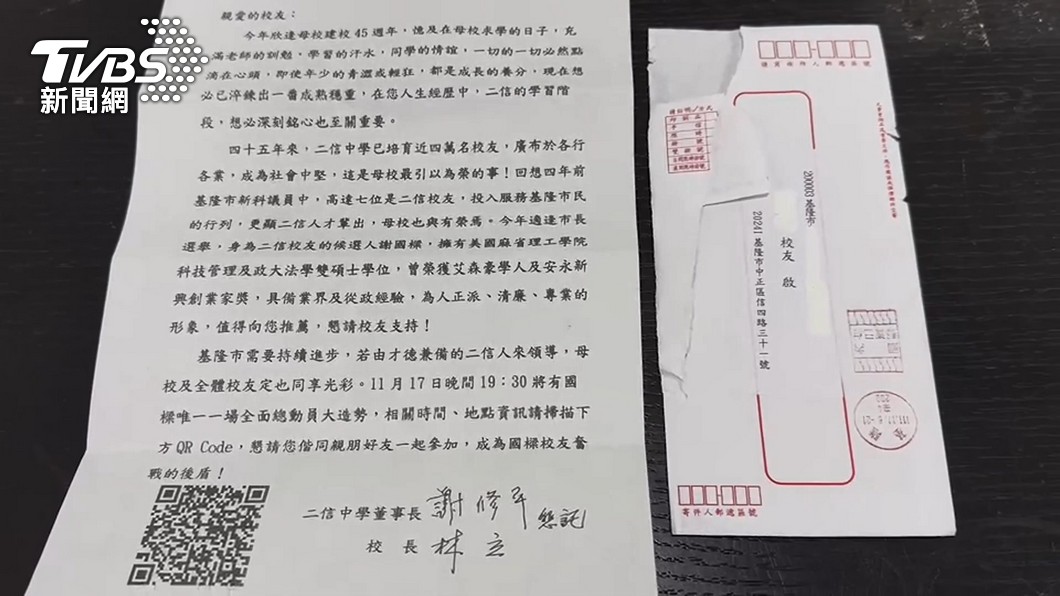 TVBS
新聞網
親愛的校友：
今年欣逢母校建校45週年，憶及在母校求學的日子，充
滿老師的訓勉，學習的汗水，同學的情誼，一切的一切必然點
滴在心頭，即使年少的青澀或輕狂，都是成長的養分，現在想
必已淬鍊出一番成熟穩重，在您人生經歷中，二信的學習階
段，想必深刻銘心也至關重要。
四十五年來，二信中學已培育近四萬名校友，廣布於各行
各業，成為社會中堅，這是母校最引以為榮的事！回想四年前
基隆市新科議員中，高達七位是二信校友，投入服務基隆市民
的行列，更顯二信人才輩出，母校也與有榮焉。今年適逢市長
選舉，身為二信校友的候選人謝國樑，擁有美國麻省理工學院
科技管理及政大法學雙碩士學位，曾榮獲艾森豪學人及安永新
興創業家獎，具備業界及從政經驗，為人正派、清廉、專業的
形象，值得向您推薦，懇請校友支持！
基隆市需要持續進步，若由才德兼備的二信人來領導，母
校及全體校友定也同享光彩。11月17日晚間19：30將有國
樑唯一一場全面總動員大造勢，相關時間、地點資訊請掃描下
方QR Code，懇請您偕同親朋好友一起參加，成為國樑校友奮
戰的後盾！
二信中學董事長 謝修平 懇託
校 長 林立
優質收件人郵遞區號
200003 基隆市
校友 啟
20241 基隆市中正區信四路三十一號
寄件人郵遞區號